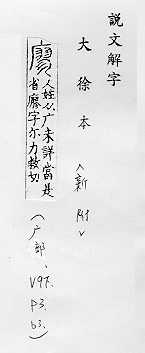 說文解字
大徐本
〈新附〉
廖
人姓从广未詳當是
省廫字尒力救切
(广部、
V9下.
P3.
b3.)